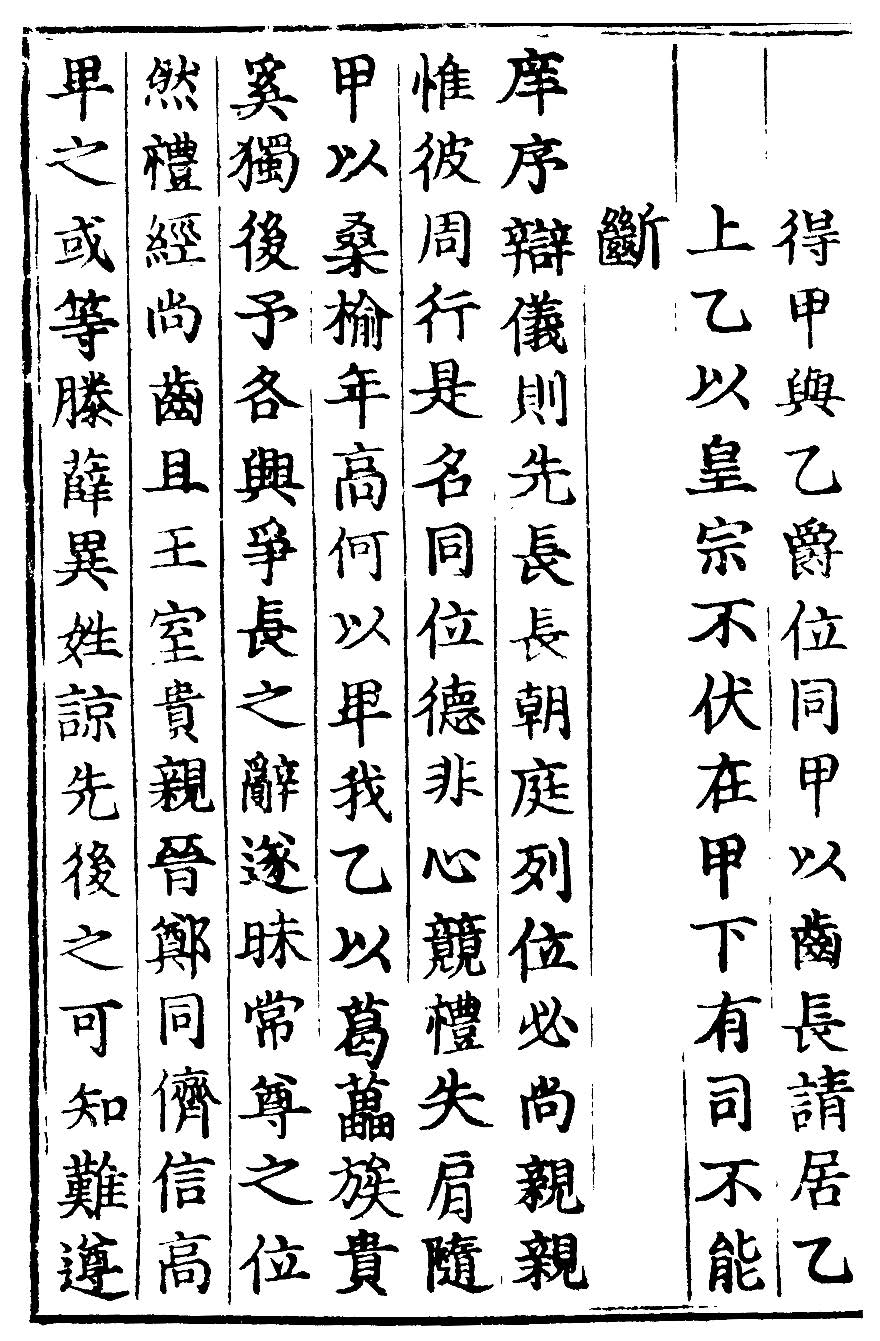 得甲與乙爵位同甲以齒長請居乙
上乙以皇宗不伏在甲下有司不能
斷
庠序辯儀則先長長朝庭列位必尚親親
惟彼周行是名同位德非心競禮失肩隨
甲以桑榆年高何以卑我乙以葛藟族貴
奚獨後予各興爭長之辭遂昧常尊之位
然禮經尚齒且王室貴親晉鄭同儕信高
卑之或等滕薛異姓諒先後之可知難遵